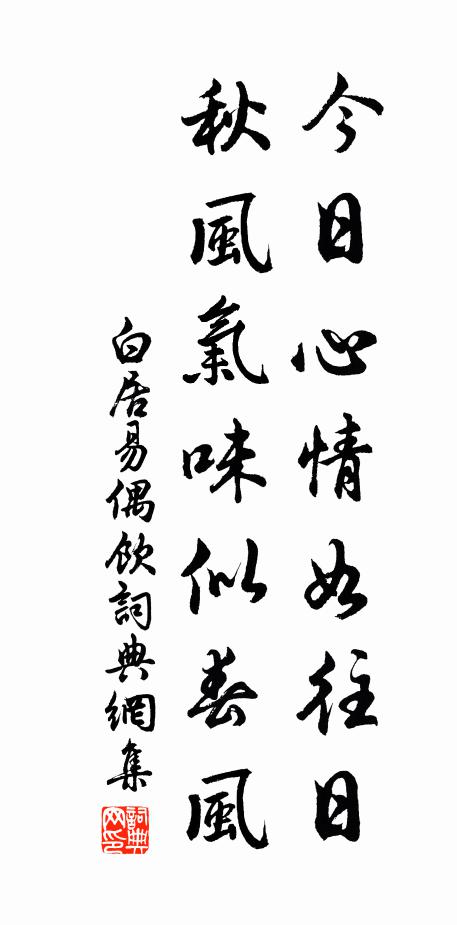 今日心情如往日
秋風氣味似春風
白居易偶飲詞典網集
詞典
网印